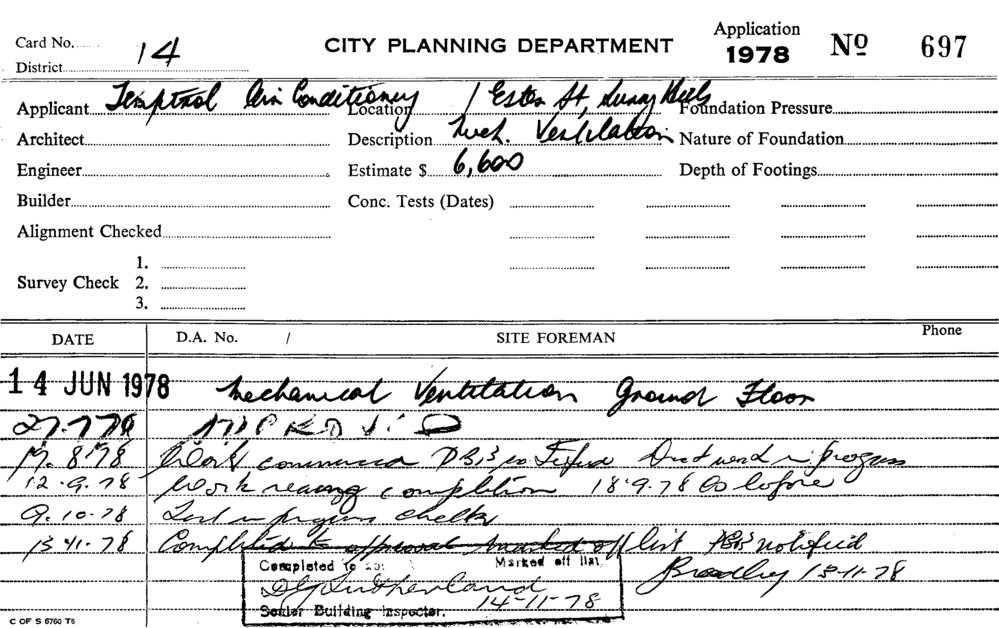 Card No. 14
CITY PLANNING DEPARTMENT
Application
1978 Nº 697
District
Applicant Temptrol Air Conditioning Location 1 Esther St, Surry Hills Foundation Pressure
Architect Description Mech. Ventilation Nature of Foundation
Engineer Estimate $ 6,600 Depth of Footings
Builder Conc. Tests (Dates)
Alignment Checked
1.
Survey Check 2.
3.
DATE D.A. No. / SITE FOREMAN Phone
14 JUN 1978 Mechanical Ventilation Ground Floor
27.7.78 APPROVED
17.8.78 Work commenced Duct work in progress
12.9.78 Work nearing completion 18.9.78 as before
9.10.78 Test in progress
13-11-78 Completed to approval marked off list notified
Completed to Marked off list Bradley 13-11-78
D G Sutherland
14-11-78
Senior Building Inspector.
C OF S 6760 T6